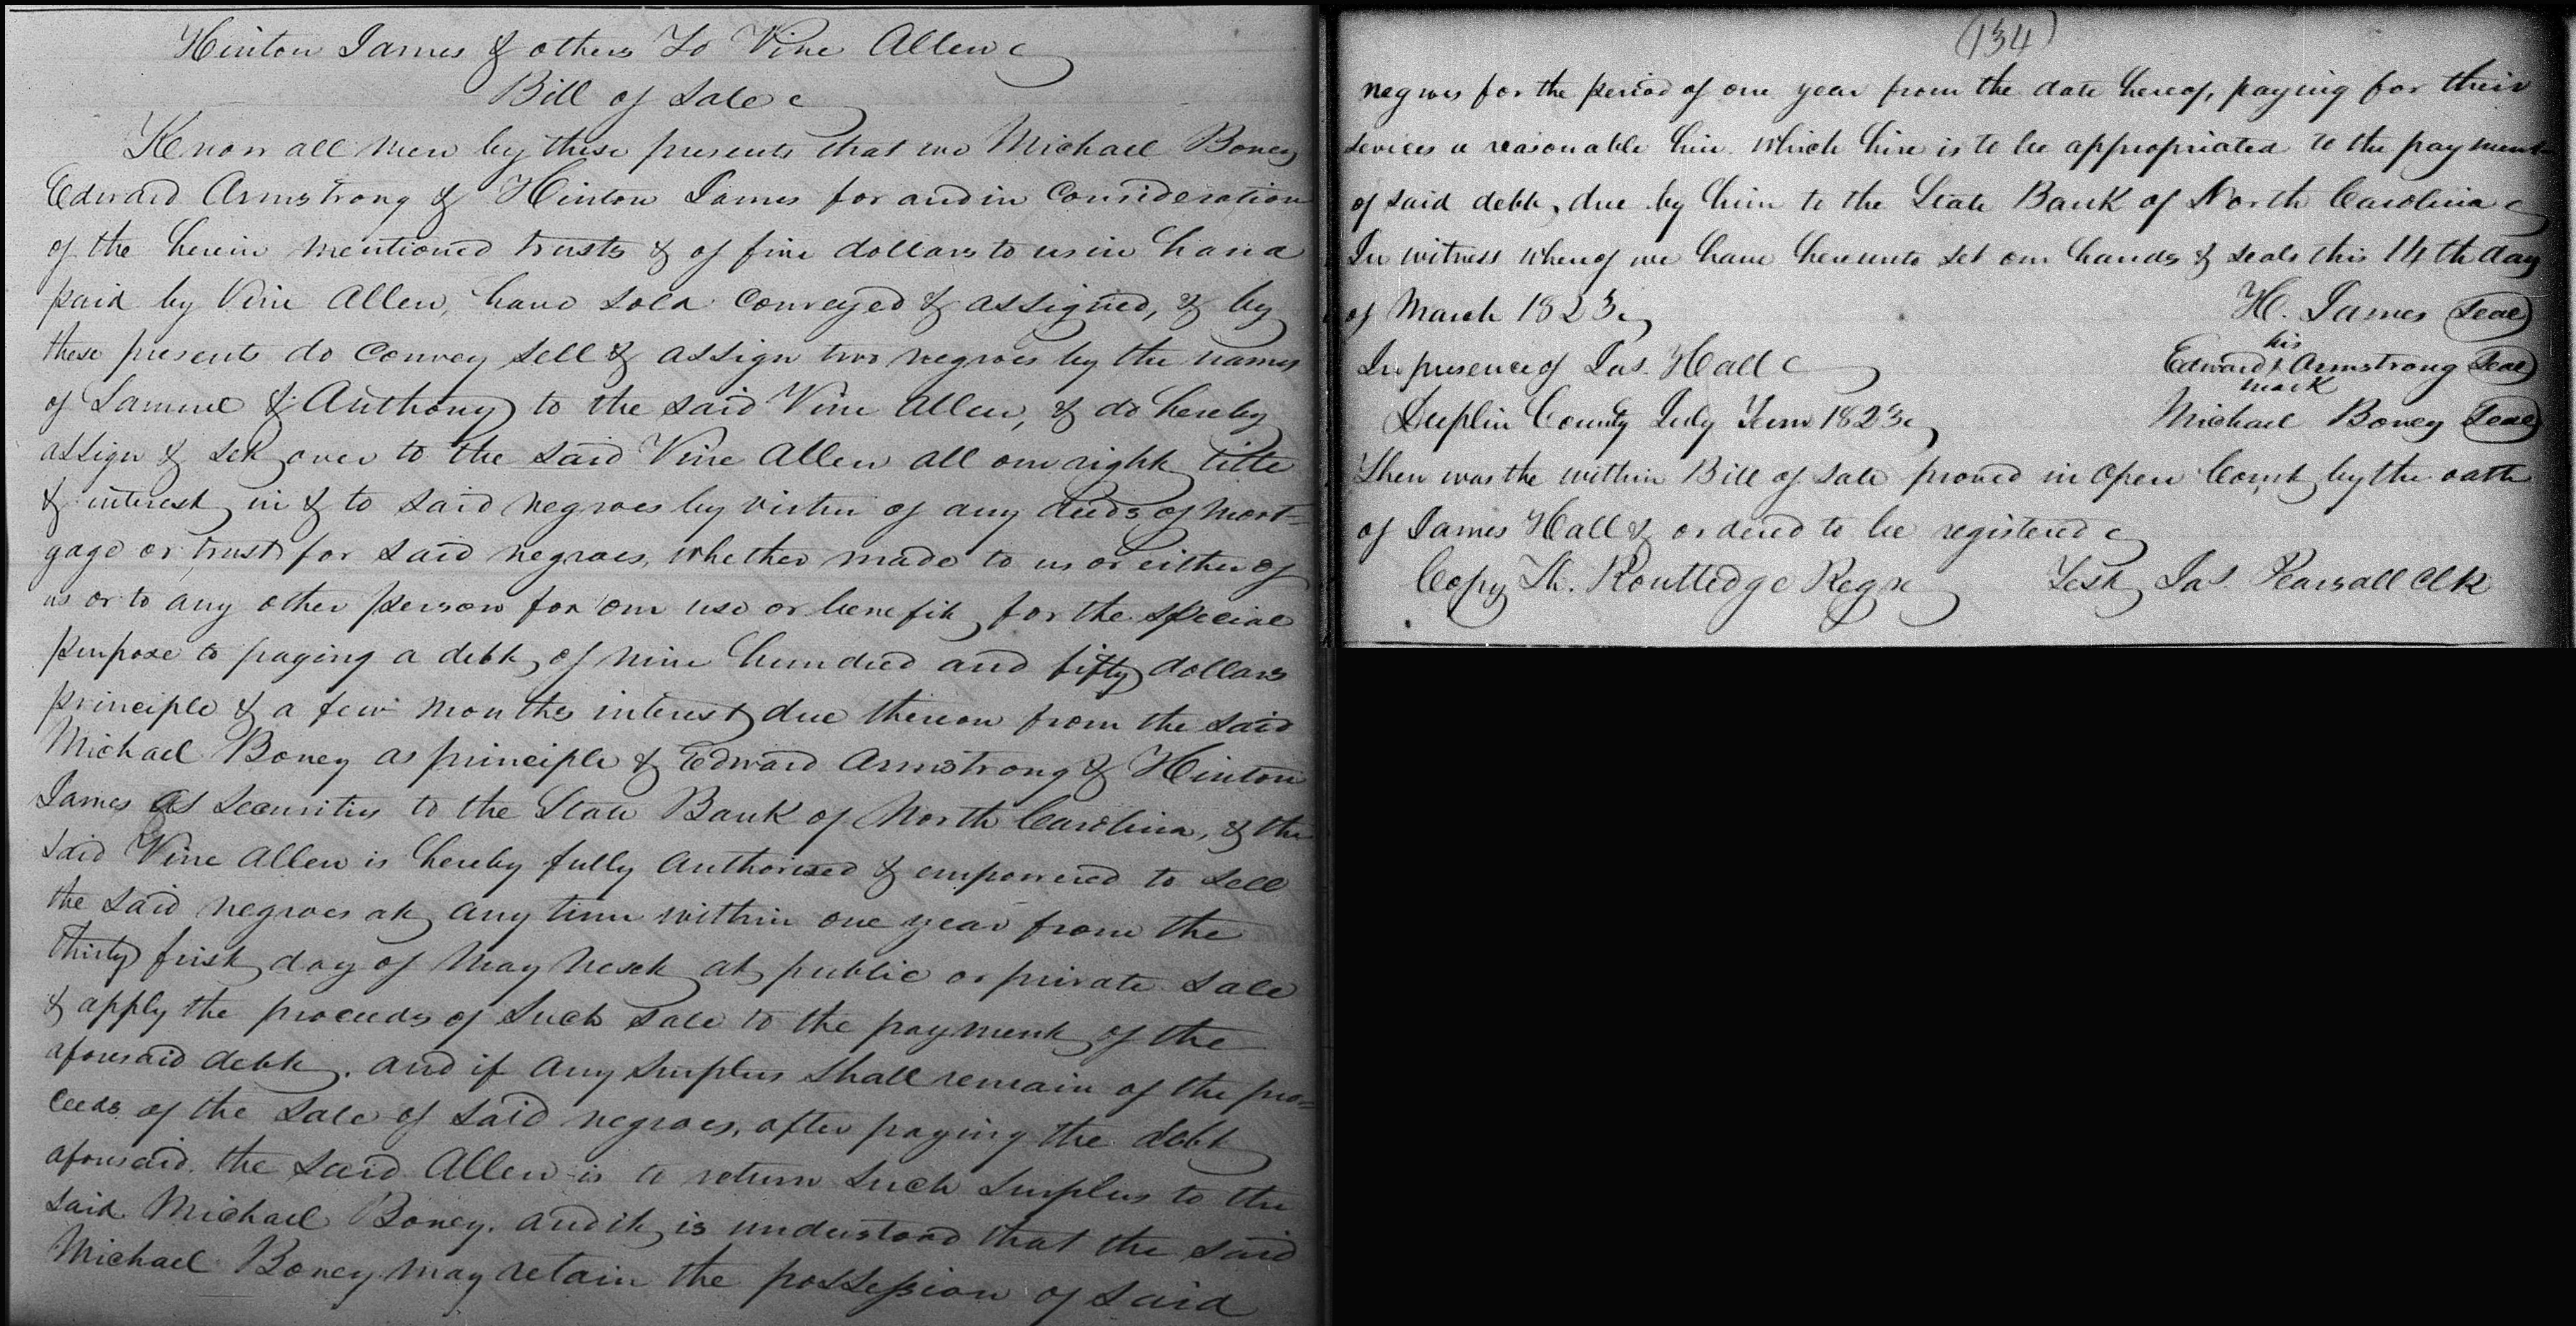 Hinton James & others To Vine Allen
Bill of Sale
Know all men by these presents that we Michael Boney
Edward Armstrong & Hinton James for and in Consideration
of the herein mentioned trusts & of five dollars to us in hand
paid by Vine Allen, have sold conveyed & assigned, & by
these presents do Convey sell & assign two negroes by the names
of Samuel & Anthony to the said Vine Allen, & do hereby
assign & set over to the said Vine Allen all our right title
& interest in & to said negroes by virtue of any deeds of mort=
gage or trust for said negroes, whether made to us or either of
us or to any other person for our use or benefit for the special
purpose to paying a debt of nine hundred and fifty dollars
principle & a few months interest due thereon from the said
Michael Boney as principle & Edward Armstrong & Hinton
James as securities to the State Bank of North Carolina, & the
said Vine Allen is hereby fully authorised & empowered to sell
the said negroes at any time within one year from the
thirty first day of May next at public or private sale
& apply the proceeds of such sale to the payment of the
aforesaid debt. and if any surplus shall remain of the pro=
ceeds of the sale of said negroes, after paying the debt
aforesaid. the said Allen is to return such surplus to the
said Michael Boney. and it is understood that the said
Michael Boney may retain the possession of said
(134)
negroes for the period of one year from the date hereof, paying for their
sevices a reasonable hire. which hire is to be appropriated to the payment
of said debt, due by him to the State Bank of North Carolina
In witness whereof we have hereunto set our hands & seals this 14th day
of March 1823 H. James Seal
his
In presence of Jas. Hall Edward X Armstrong Seal
mark
Duplin County July Term 1823 Michael Boney Seal
Then was the within Bill of sale proved in open Court by the oath
of James Hall & ordered to be registered
Copy Th. Routledge Regr Test Jas. Pearsall Clk